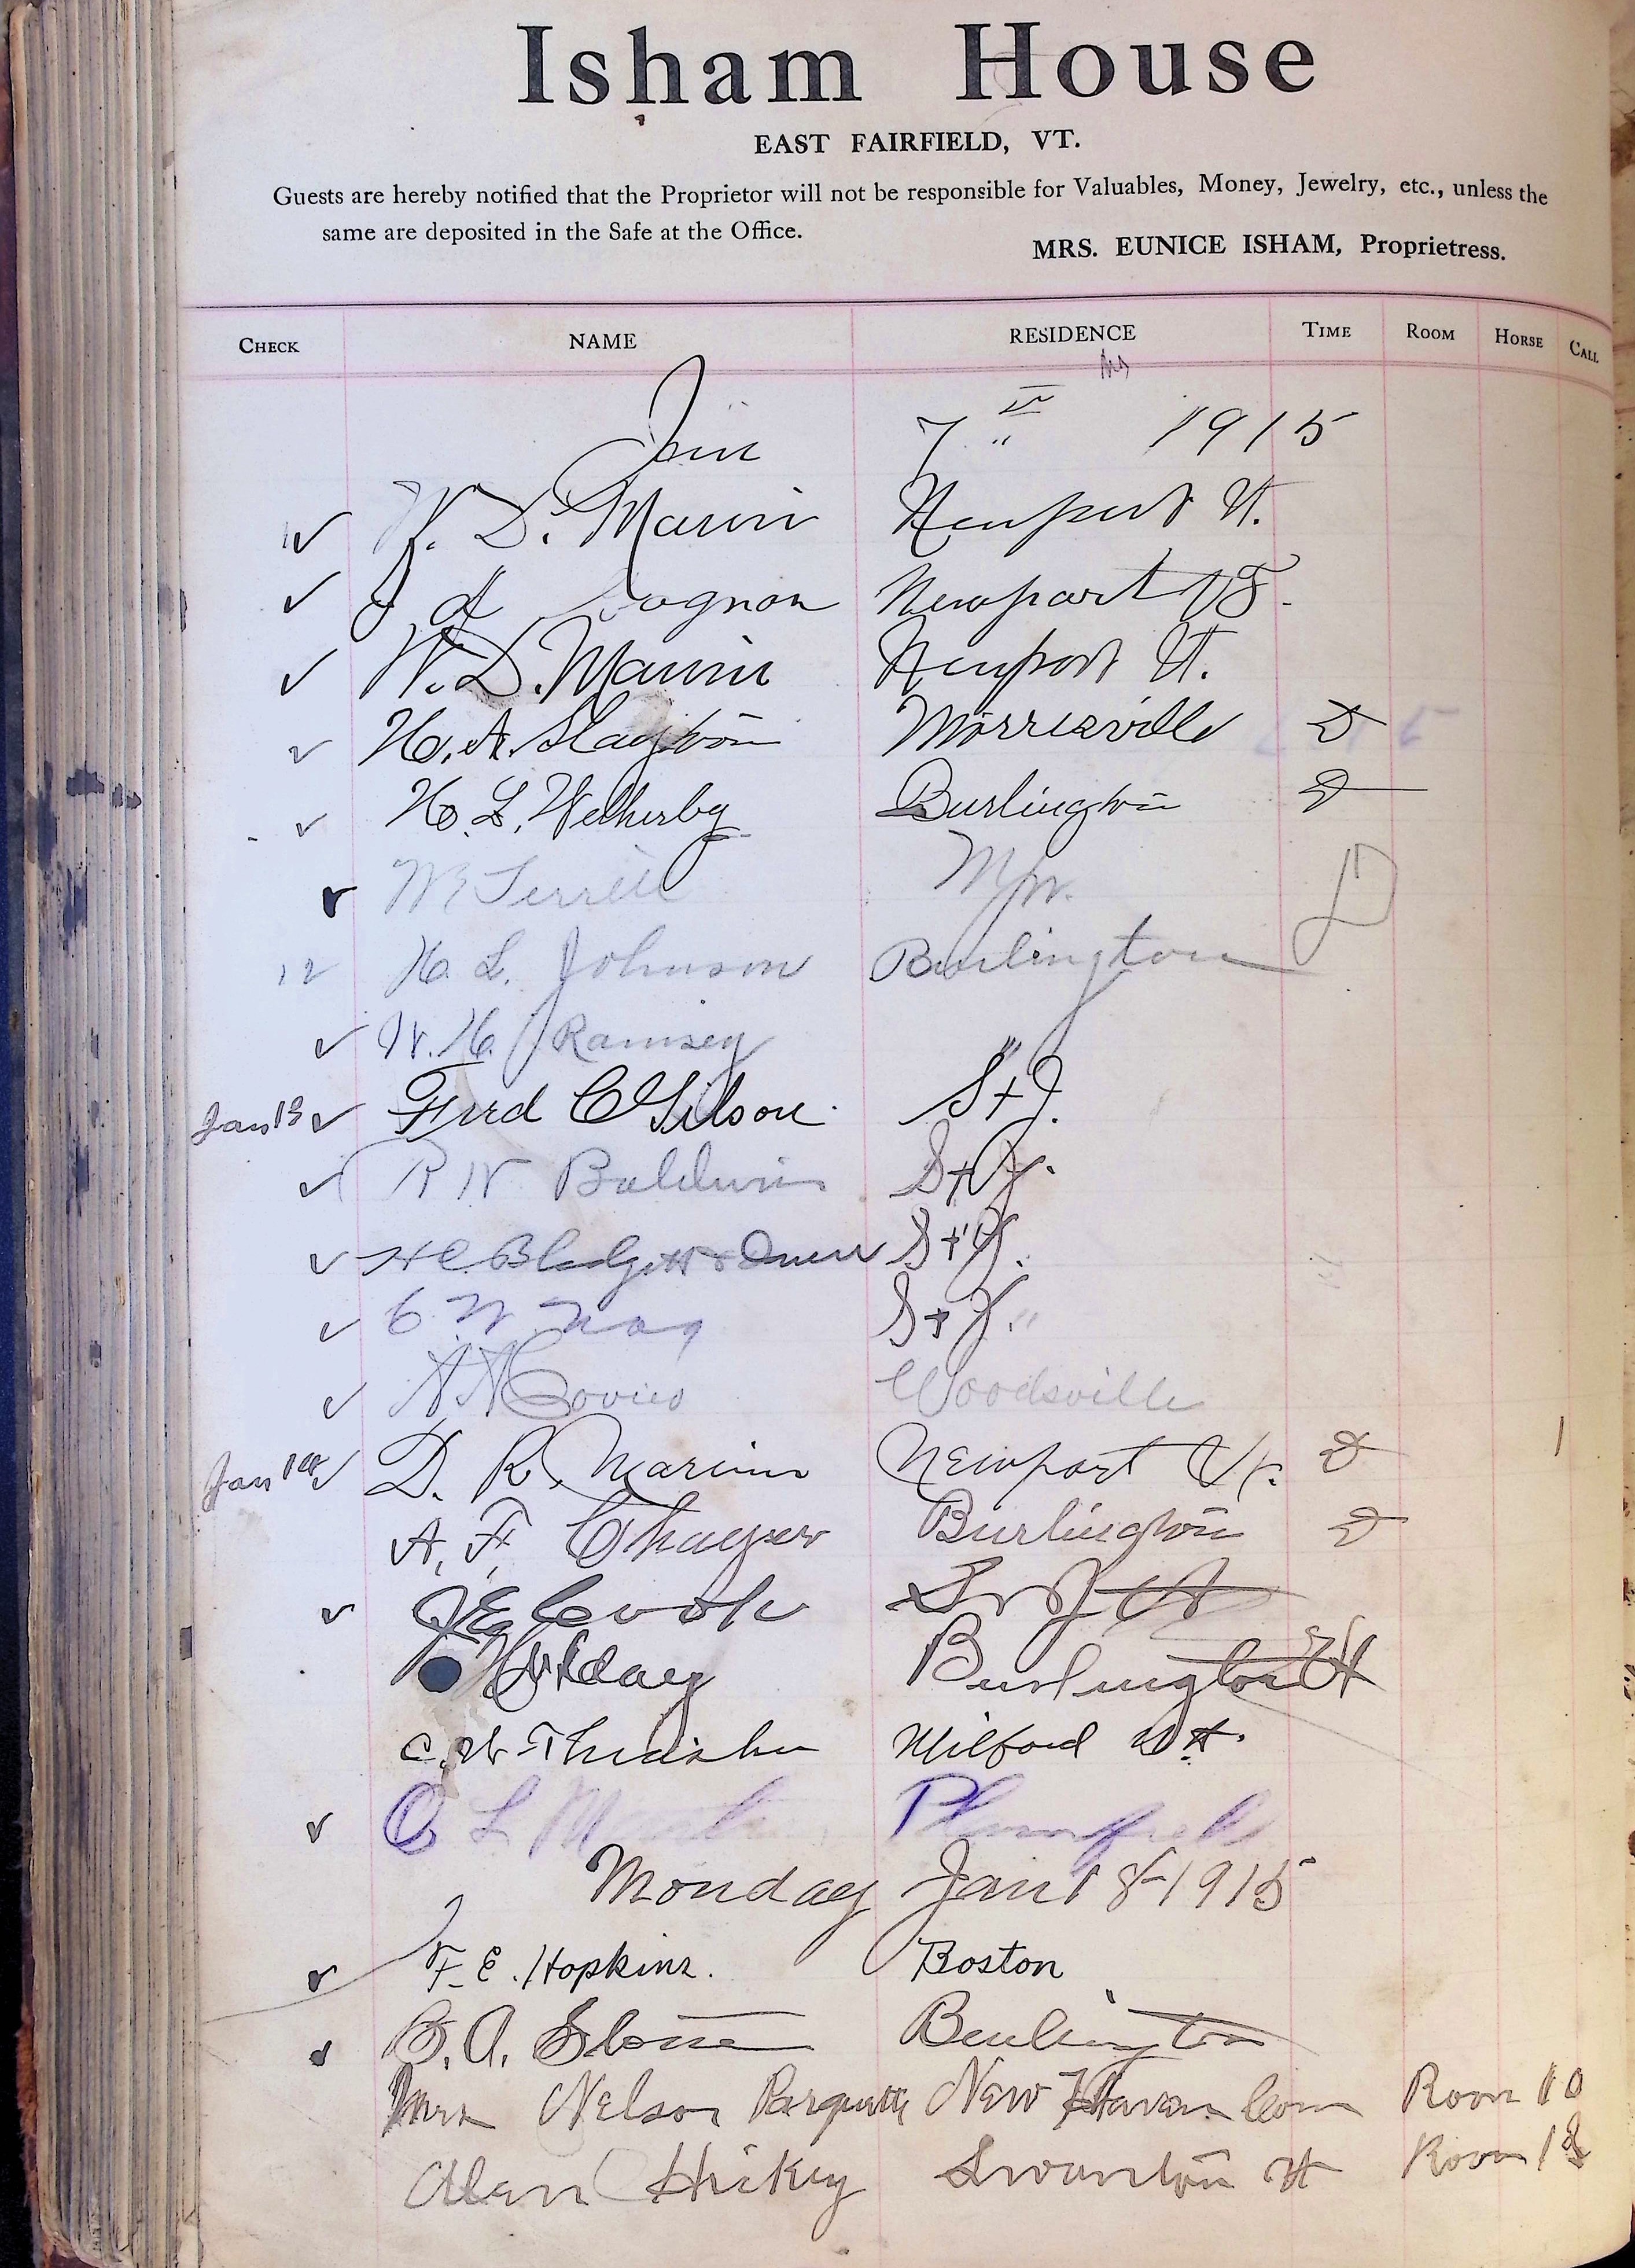 Isham House
EAST FAIRFIELD, VT.
Guests are hereby notified that the Proprietor will not be responsible for Valuables, Money, Jewelry, etc., unless the
same are deposited in the Safe at the Office.
MRS. EUNICE ISHAM, Proprietress.
CHECK NAME RESIDENCE TIME ROOM HORSE CALL
Jan 7 1915
W. D. Marvin Newport Vt.
Newport Vt.
W. D. Marvin Newport Vt.
H. A. Slayton Morrisville D
H. L. Wetherby Burlington D
W E Terrill D
H. L. Johnson Burlington
W. H. Ramsey "
Jan 13 Fred C Gilson St J.
R W Baldwin St J.
H C Blodgett + St J.
C. W. St J. "
Woodsville
Jan 14 D. R. Marvin Newport Vt. D 1
A. F. Burlington D
J E Cook
Burlington Vt
C. W. Thrasher Milford N.H.
O L Plainfield
Monday Jan 18-1915
F. E. Hopkins. Boston
B. A. Stone Burlington
Mrs Nelson New Haven Conn Room 10
Alan Hickey Swanton Vt Room 18